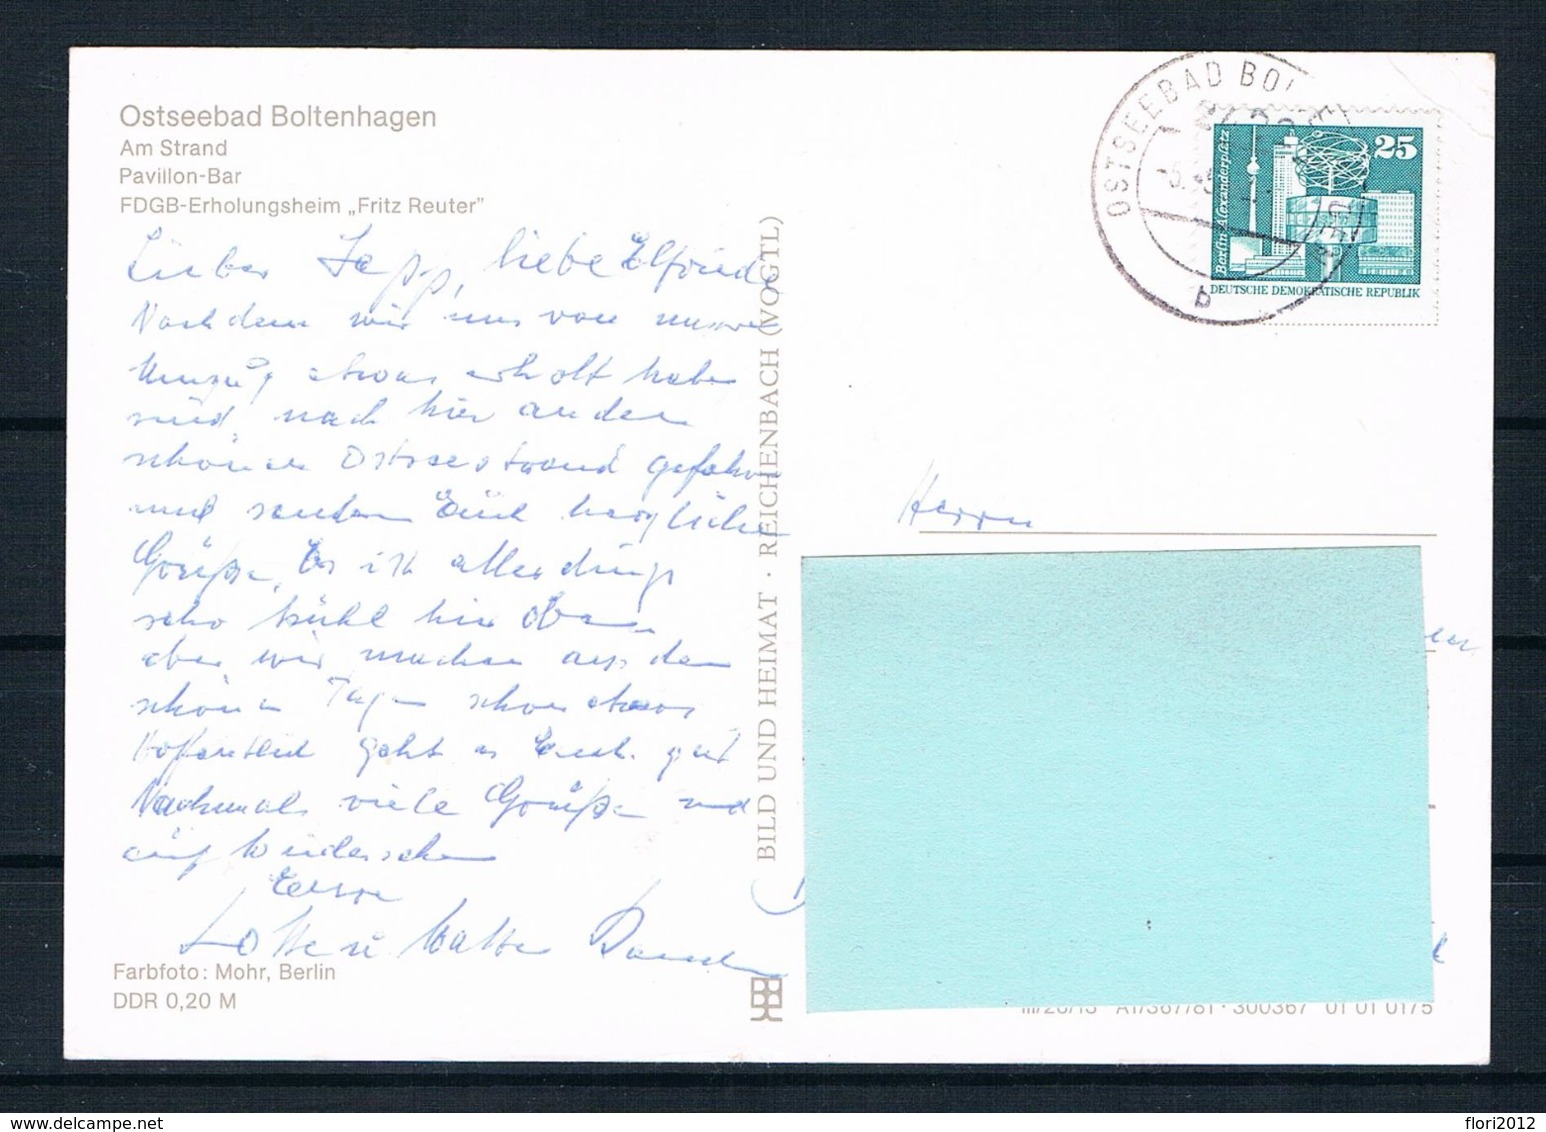 Ostseebad Boltenhagen
Am Strand
Pavillon-Bar
FDGB-Erholungsheim „Fritz Reuter”
Lieber Sepp, liebe Elfriede
Nachdem wir uns von unserem
Umzug etwas erholt haben
sind nach hier an den
schönen Ostseestrand gefahren
und senden Euch herzliche
Grüße. Es ist allerdings
sehr kühl hier oben
aber wir machen aus den
schönen Tagen schon etwas
Hoffentlich geht es Euch gut
Nochmals viele Grüße und
auf Wiedersehen
Eure
Lotte u Walter
Farbfoto: Mohr, Berlin
DDR 0,20 M
BILD UND HEIMAT · REICHENBACH (VOGTL)
OSTSEEBAD BOL
b
25
Berlin, Alexanderplatz
DEUTSCHE DEMOKRATISCHE REPUBLIK
Herrn
III/26/13 A1/367/81 · 300367 01 01 0175
delcampe.net
flori2012